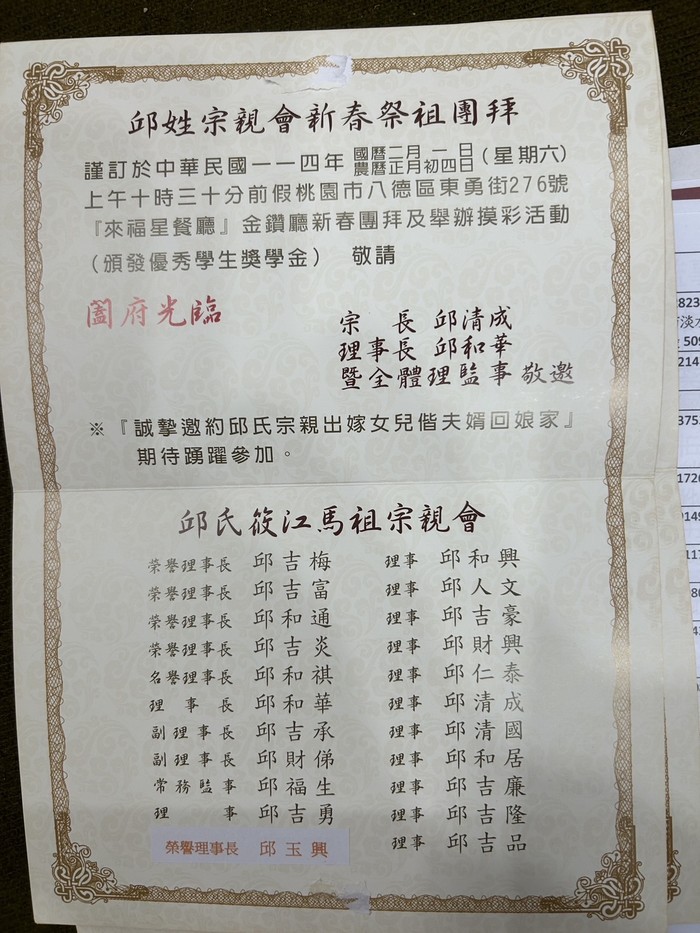 邱姓宗親會新春祭祖團拜
謹訂於中華民國一一四年 國曆二月一日 農曆正月初四日 (星期六)
上午十時三十分前假桃園市八德區東勇街276號
『來福星餐廳』金鑽廳新春團拜及舉辦摸彩活動
(頒發優秀學生獎學金) 敬請
闔府光臨
宗 長 邱清成
理事長 邱和華
暨全體理監事 敬邀
※『誠摯邀約邱氏宗親出嫁女兒偕夫婿回娘家』
期待踴躍參加。
邱氏筱江馬祖宗親會
榮譽理事長 邱吉梅 理事 邱和興
榮譽理事長 邱吉富 理事 邱人文
榮譽理事長 邱和通 理事 邱吉豪
榮譽理事長 邱吉炎 理事 邱財興
名譽理事長 邱和祺 理事 邱仁泰
理事長 邱和華 理事 邱清成
副理事長 邱吉承 理事 邱清國
副理事長 邱財俤 理事 邱和居
常務監事 邱福生 理事 邱吉廉
理事 邱吉勇 理事 邱吉隆
榮譽理事長 邱玉興 理事 邱吉品